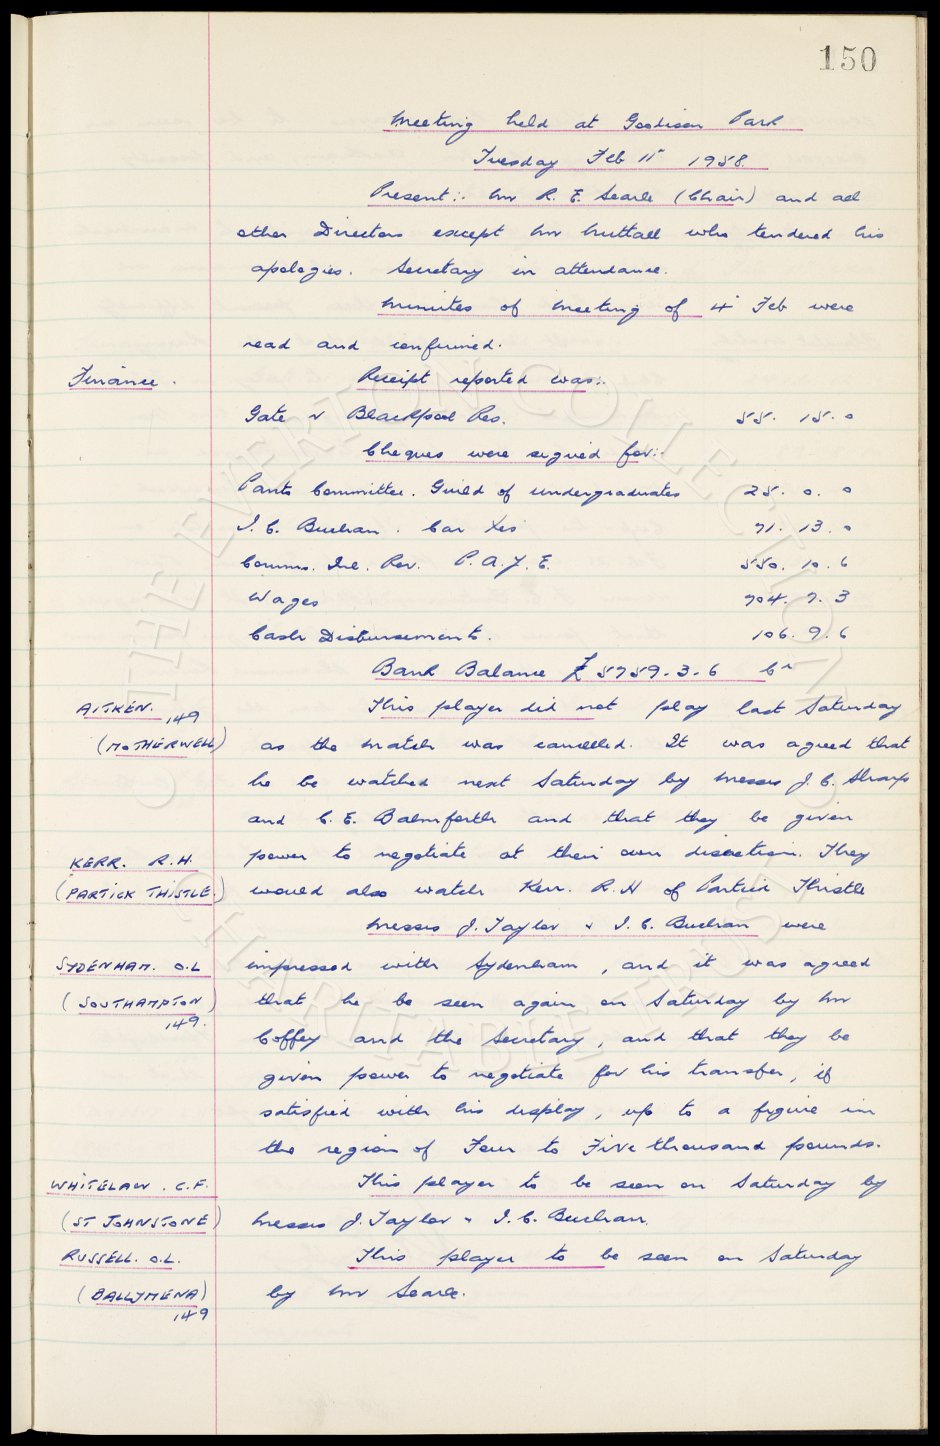 150
Meeting held at Goodison Park
Tuesday Feb 11th 1958.
Present:- Mr R. E. Searle (Chair) and all
other Directors except Mr Nuttall who tendered his
apologies. Secretary in attendance.
Minutes of Meeting of 4th Feb were
read and confirmed.
Finance. Receipt reported was:-
Gate v Blackpool Res. 55. 15. 0
Cheques were signed for:-
Panto Committee. Guild of undergraduates 25. 0. 0
I. C. Buchan. Car 71. 13. 0
Comms. Inl. Rev. P.A.Y.E. 550. 10. 6
Wages 704. 7. 3
Cash Disbursements. 106. 9. 6
Bank Balance £5759. 3. 6 Cr
AITKEN. 149 This player did not play last Saturday
(MOTHERWELL) as the match was cancelled. It was agreed that
he be watched next Saturday by Messrs J. C. Sharp
and C. E. Balmforth and that they be given
KERR. R.H. power to negotiate at their own discretion. They
(PARTICK THISTLE.) would also watch Kerr. R.H of Partick Thistle
Messrs J. Taylor & I. C. Buchan were
SYDENHAM. O.L impressed with Sydenham, and it was agreed
(SOUTHAMPTON) that he be seen again on Saturday by Mr
149. Coffey and the Secretary, and that they be
given power to negotiate for his transfer, if
satisfied with his display, up to a figure in
the region of Four to Five thousand pounds.
WHITELAW. C.F. This player to be seen on Saturday by
(ST JOHNSTONE) Messrs J. Taylor & I. C. Buchan.
RUSSELL. O.L. This player to be seen on Saturday
(BALLYMENA) by Mr Searle.
149
© THE EVERTON COLLECTION
CHARITABLE TRUST